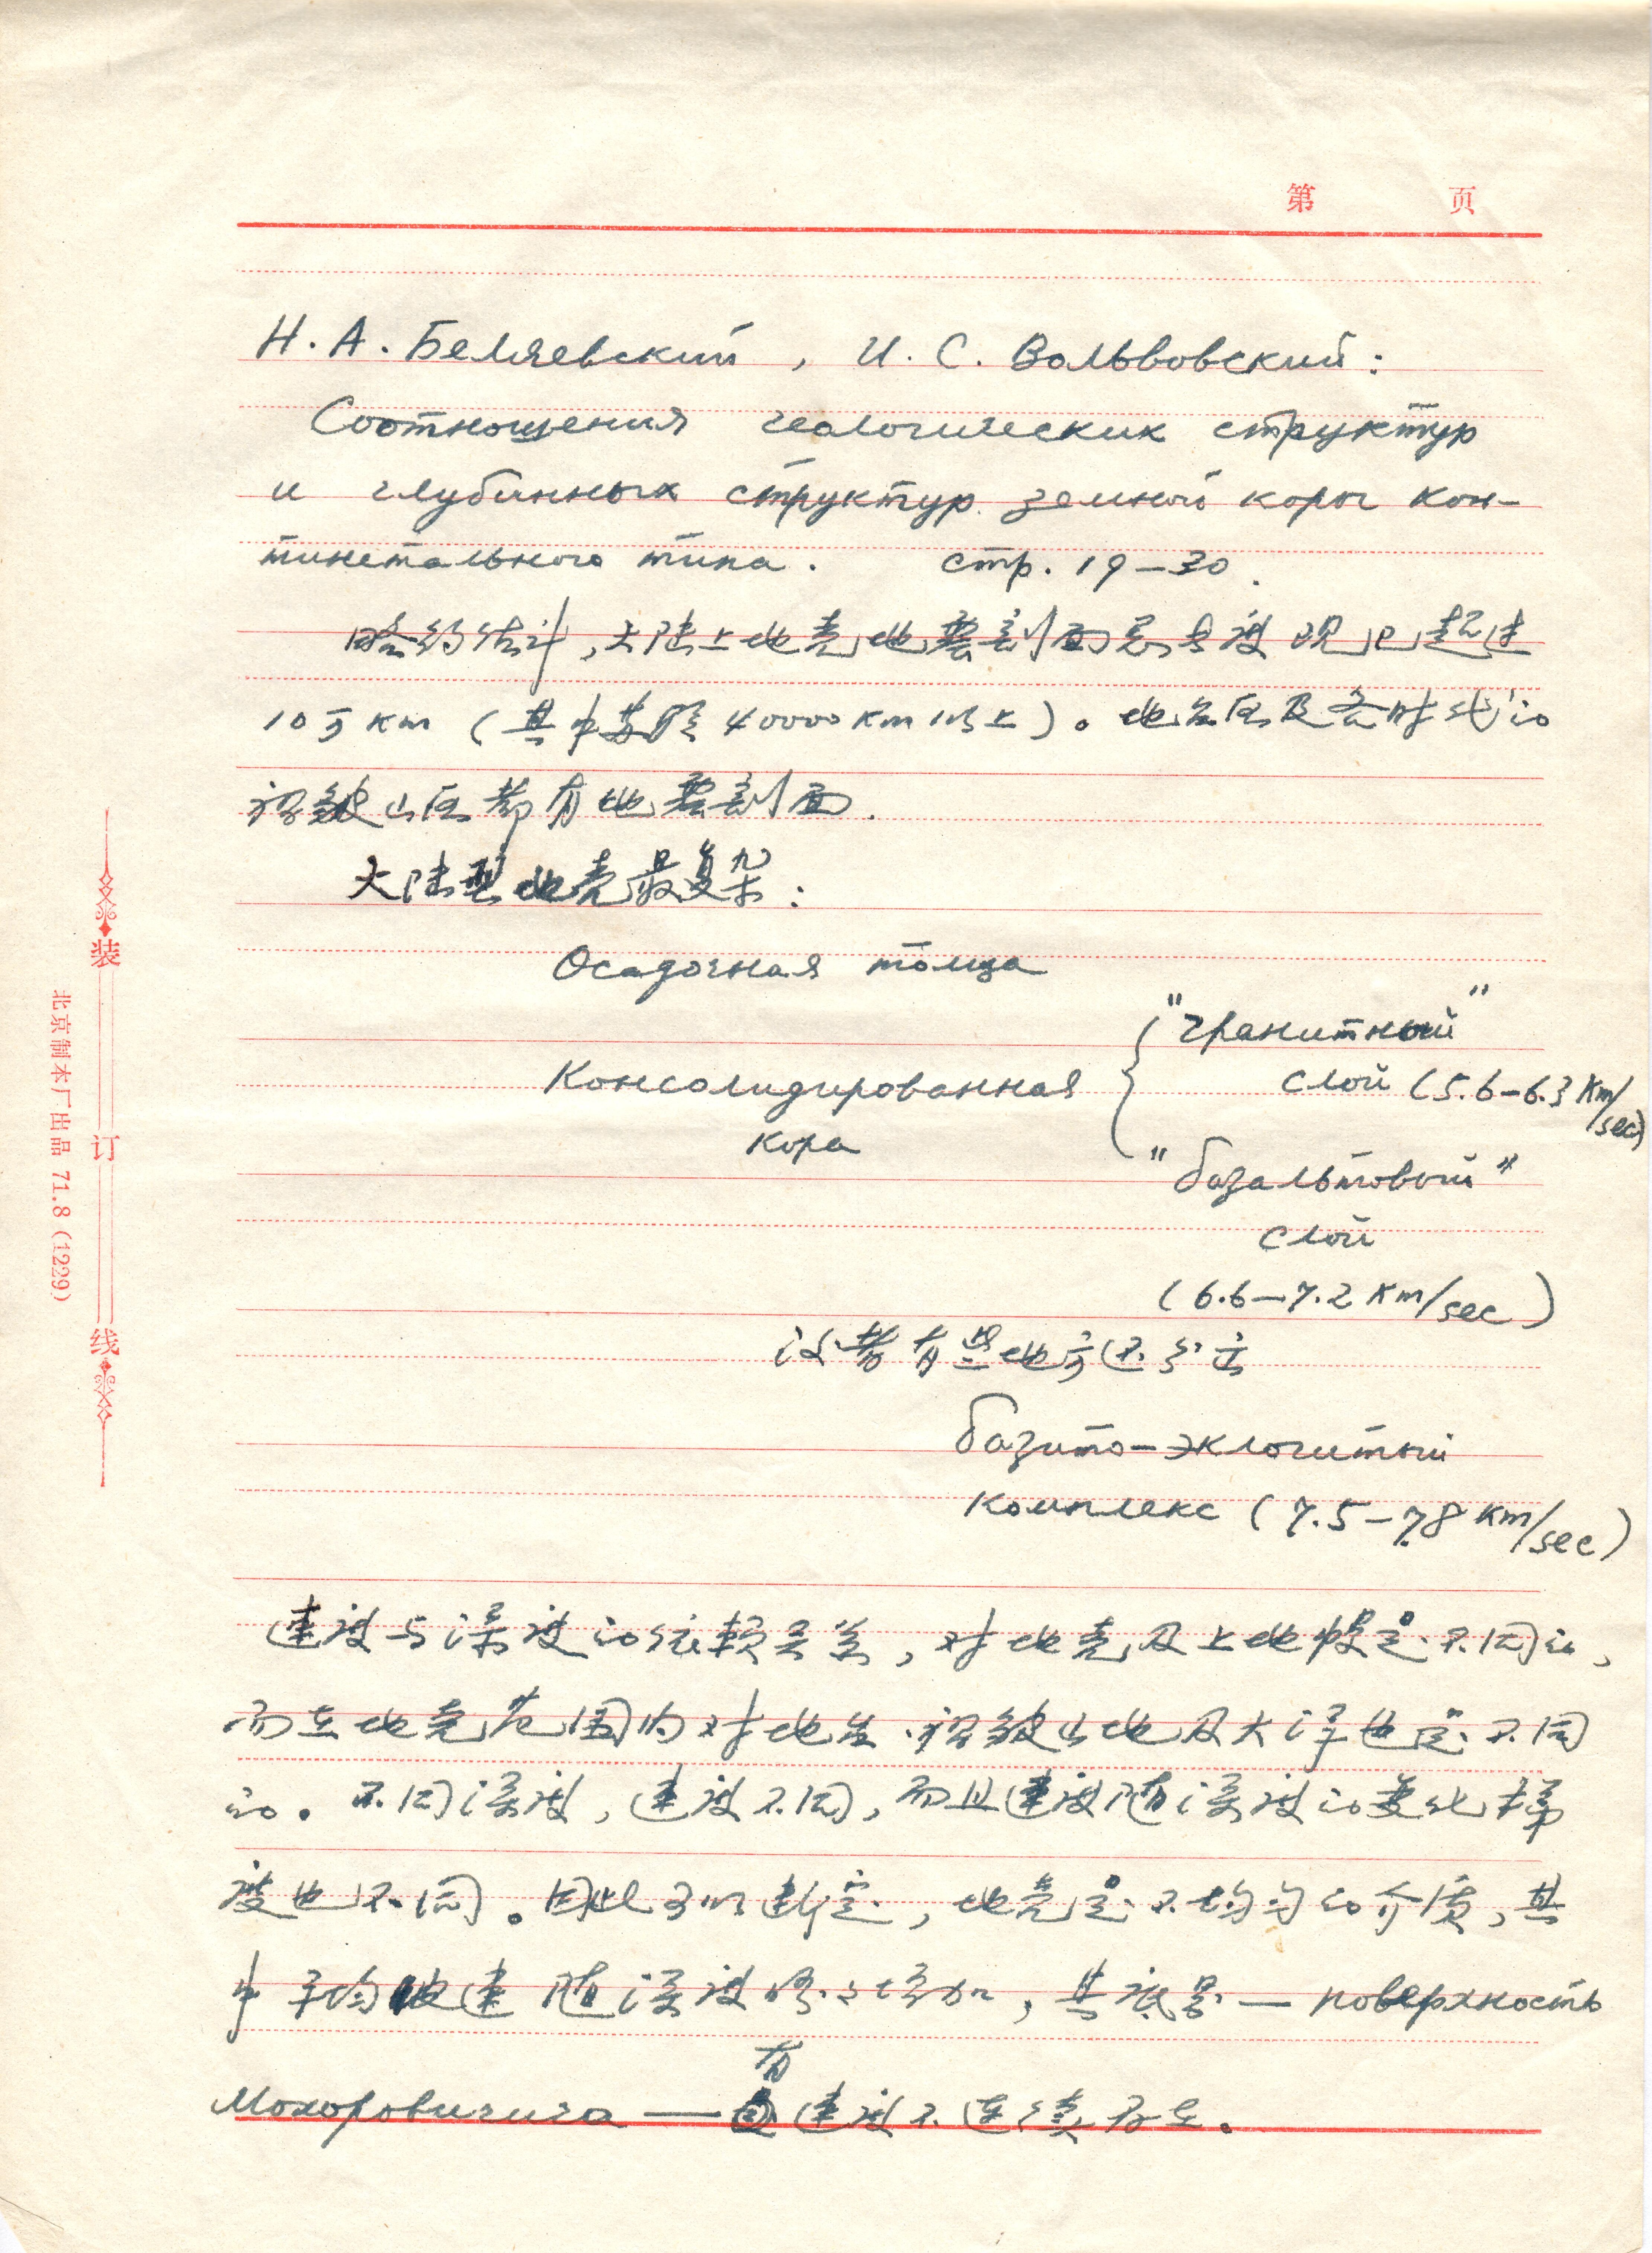 第 页
Н. А. Беляевский, И. С. Вольвовский:
Соотношения геологических структур
и глубинных структур земной коры кон-
тинетального типа. стр. 19—30.
略约估计,大陆上地壳地震剖面总长度现已超过
10万km (其中苏联40000km以上)。地台区及各时代的
褶皱山区都有地震剖面.
大陆型地壳最复杂:
Осадочная толща
"гранитный"
Консолидированная слой (5.6—6.3 km/sec)
кора
"базальтовый"
слой
(6.6—7.2 km/sec)
有些地方还分出
базито-эклогитный
комплекс (7.5—7.8 km/sec)
速度与深度的依赖关系,对地壳及上地幔是不同的,
而在地壳范围内对地台、褶皱山地及大洋也是不同
的。不同深度,速度不同,而且速度随深度的变化梯
度也不同。因此可以断定,地壳是不均匀的介质,其
中平均波速随深度增加,其底界—поверхность
Мохоровичича — 有速度不连续存在。
装 订 线
北京制本厂出品 71.8 (1229)